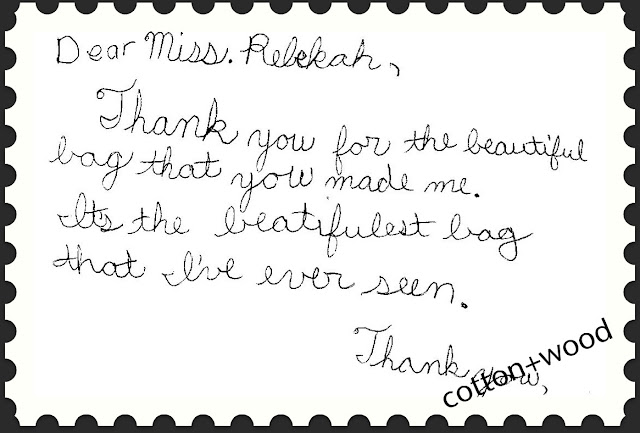 Dear Miss. Rebekah,
Thank you for the beautiful
bag that you made me.
It's the beatifulest bag
that I've ever seen.
Thank you,
cotton+wood